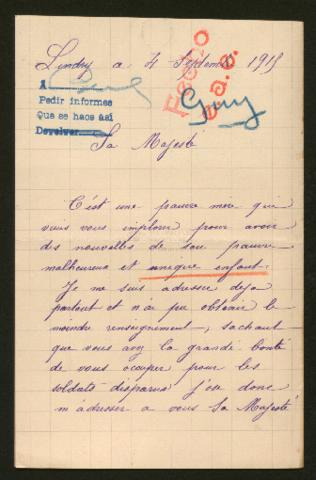 Lindry a 4 Septembre 1915
A
Pedir informes
Que se hace asi
Devolver
Fecho
Sa Majesté
C'est une pauvre mere que
vais vous implorer pour avoir
des nouvelles de son pauvre
malheureux et unique enfant.
Je me suis adresser deja
partout et n'ai pu obtenir le
moindre renseignement, sachant
que vous avez la grande bonté
de vous occuper pour les
soldats disparus j'ose donc
m'adresser a vous Sa Majesté